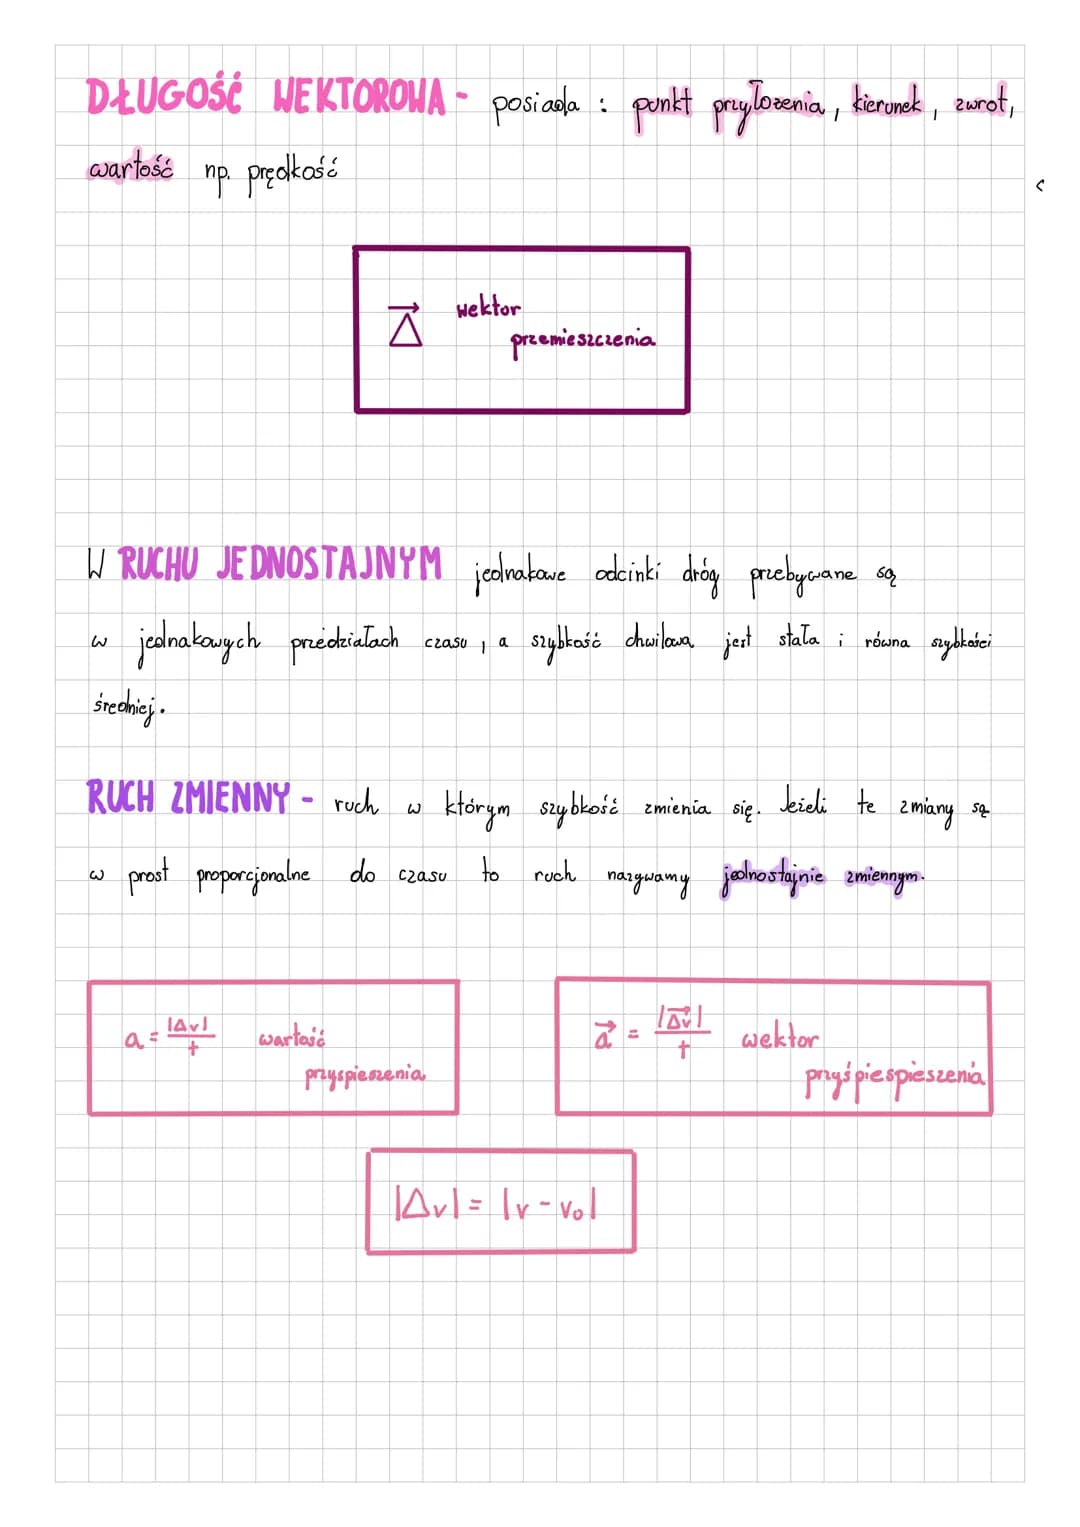 DŁUGOŚĆ WEKTOROWA - posiada : punkt przyłożenia, kierunek, zwrot,
wartość np. prędkość
→Δ wektor
przemieszczenia
W RUCHU JEDNOSTAJNYM jednakowe odcinki dróg przebywane są
w jednakowych przedziałach czasu, a szybkość chwilowa jest stała i równa szybkości
średniej.
RUCH ZMIENNY - ruch w którym szybkość zmienia się. Jeżeli te zmiany są
w prost proporcjonalne do czasu to ruch nazywamy jednostajnie zmiennym.
a = |Δv|/t wartość
przyspieszenia
a⃗ = |Δv⃗|/t wektor
przyśpiespieszenia
|Δv| = |v - v₀|